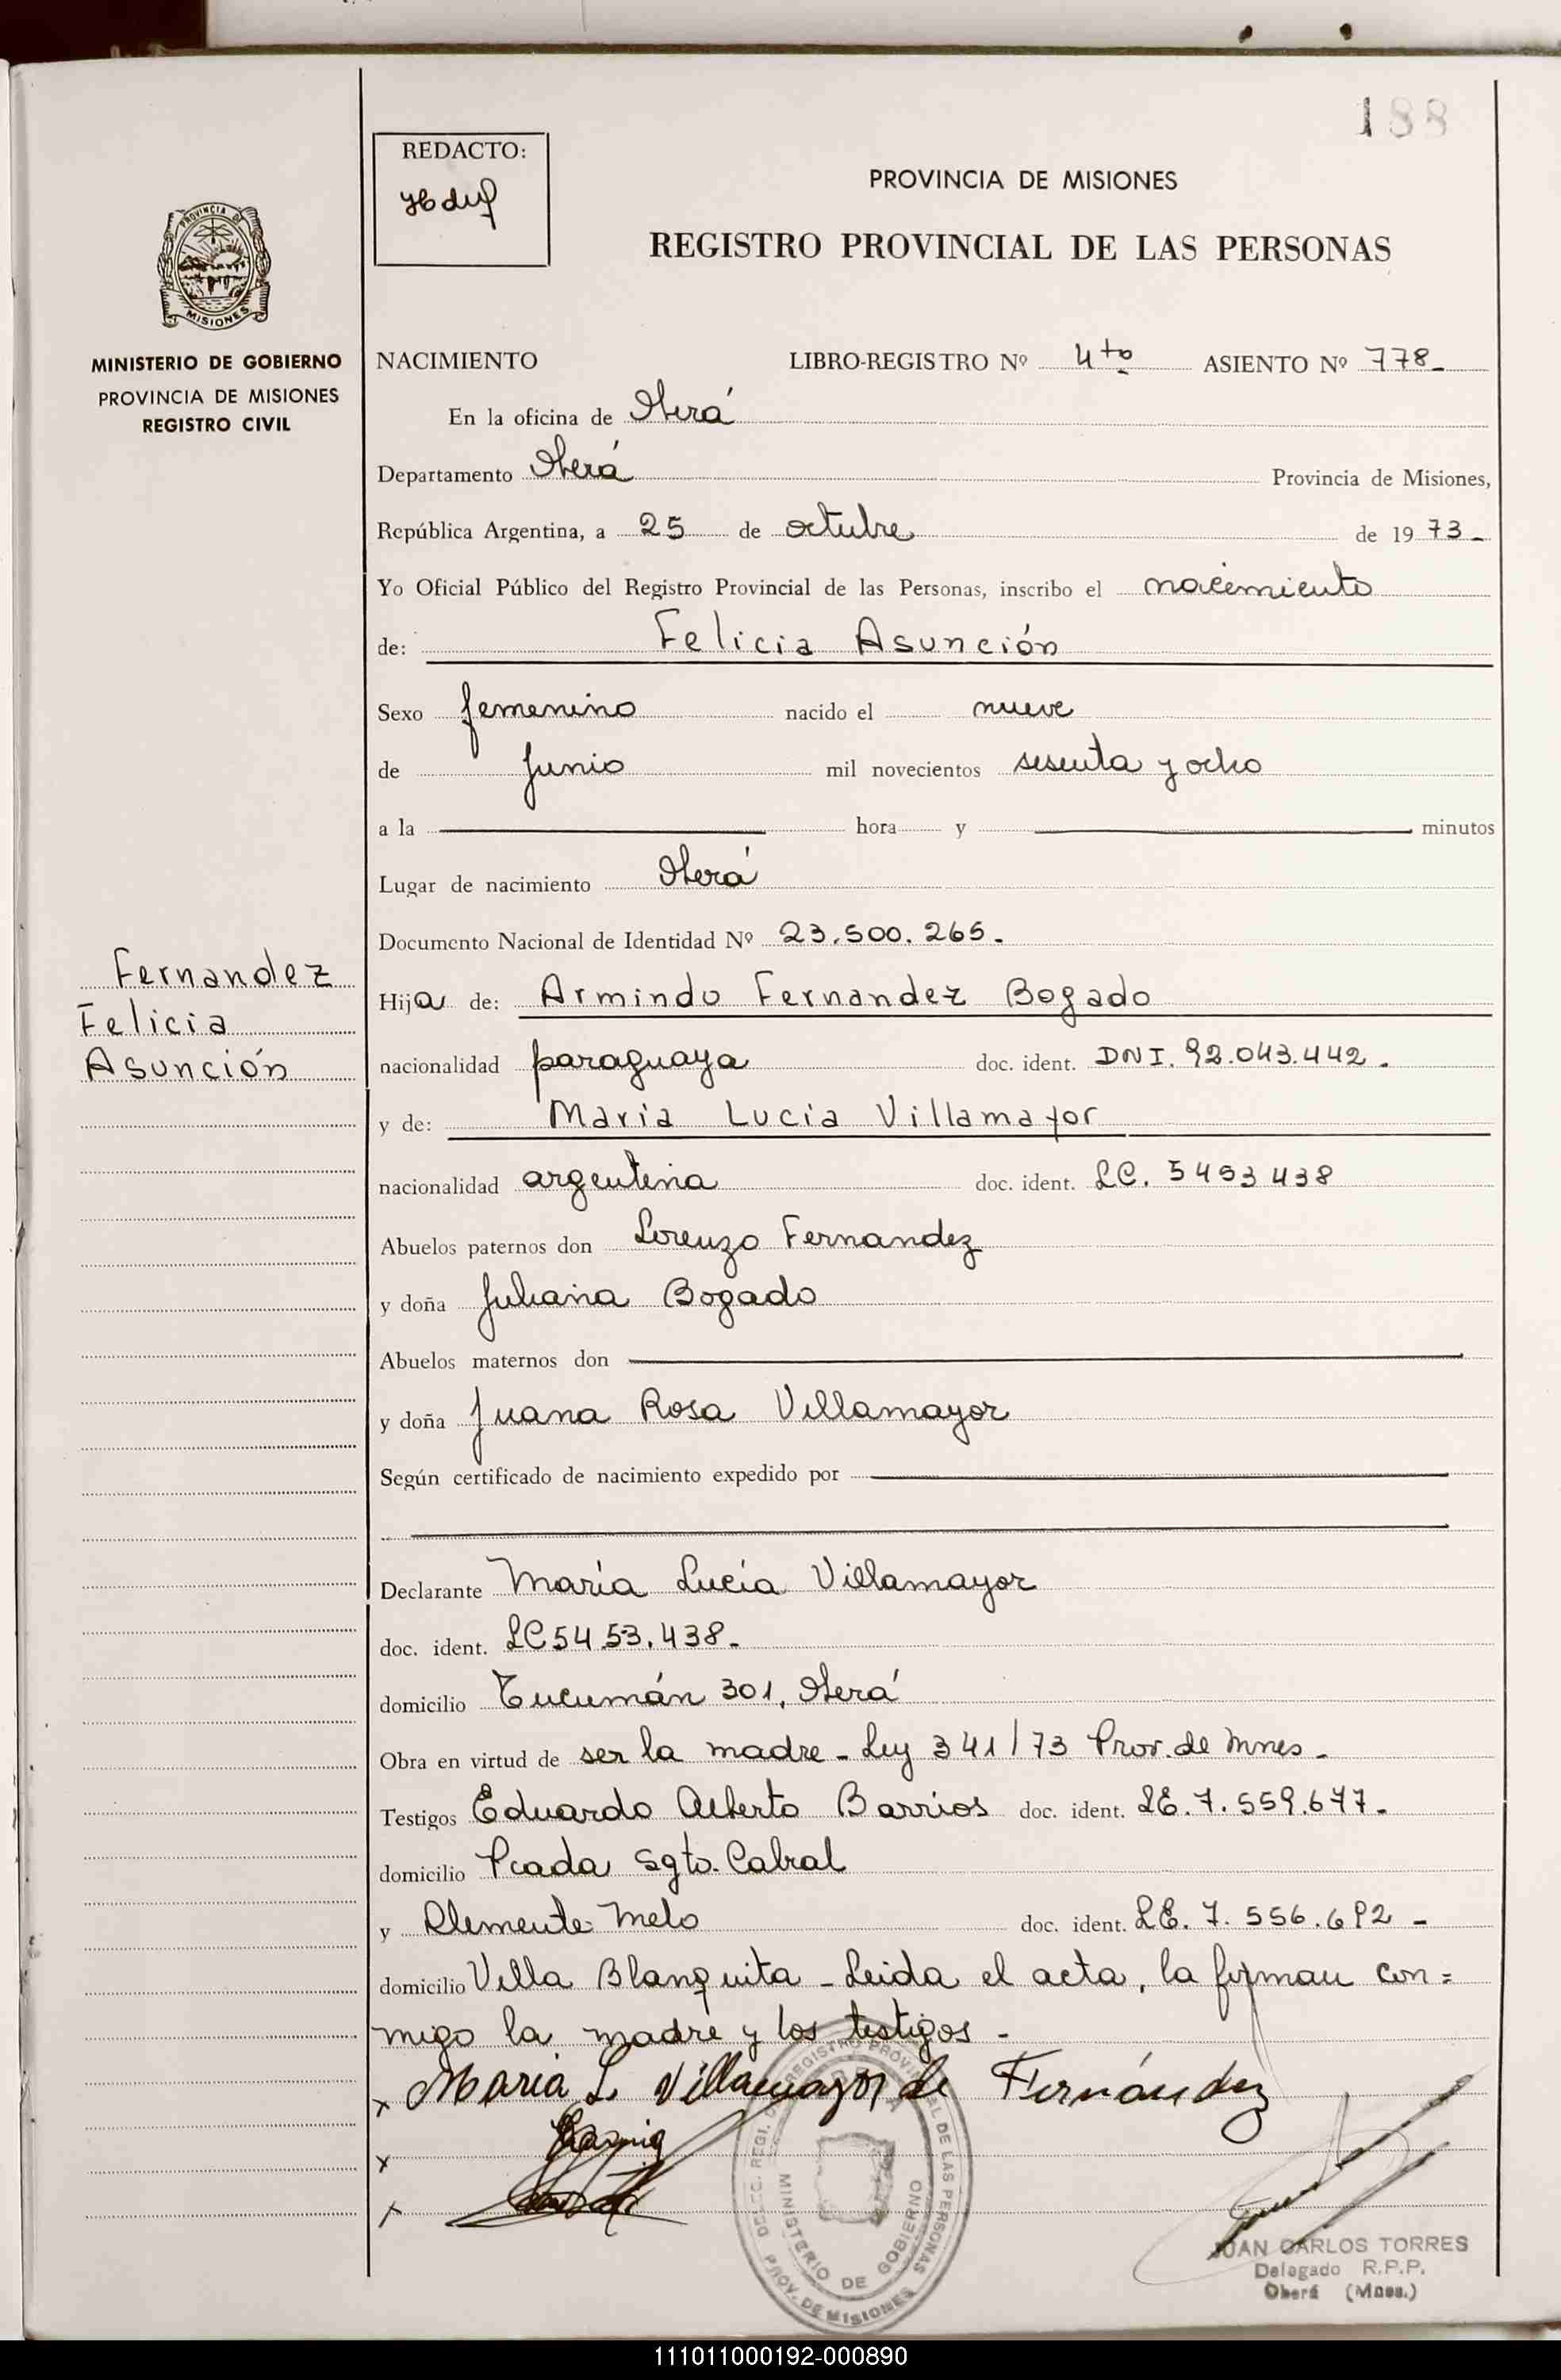 188
REDACTO:
PROVINCIA DE MISIONES
REGISTRO PROVINCIAL DE LAS PERSONAS
PROVINCIA DE
MISIONES
MINISTERIO DE GOBIERNO
PROVINCIA DE MISIONES
REGISTRO CIVIL
NACIMIENTO LIBRO-REGISTRO Nº 4to ASIENTO Nº 778_
En la oficina de Oberá
Departamento Oberá Provincia de Misiones,
República Argentina, a 25 de octubre de 1973_
Yo Oficial Público del Registro Provincial de las Personas, inscribo el nacimiento
de: Felicia Asunción
Sexo femenino nacido el nueve
de Junio mil novecientos sesenta y ocho
a la hora y minutos
Lugar de nacimiento Oberá
Documento Nacional de Identidad Nº 23.500.265.
Fernandez
Felicia
Asunción
Hija de: Armindo Fernandez Bogado
nacionalidad paraguaya doc. ident. DNI. 92.043.442.
y de: Maria Lucia Villamayor
nacionalidad argentina doc. ident. LC. 5453438
Abuelos paternos don Lorenzo Fernandez
y doña Juliana Bogado
Abuelos maternos don
y doña Juana Rosa Villamayor
Según certificado de nacimiento expedido por
Declarante María Lucía Villamayor
doc. ident. LC 5453.438_
domicilio Tucumán 301, Oberá
Obra en virtud de ser la madre - Ley 341/73 Prov. de Mnes -
Testigos Eduardo Alberto Barrios doc. ident. LE. 7.559.677.
domicilio Pcada Sgto. Cabral
y Clemente Melo doc. ident. LE. 7.556.692 -
domicilio Villa Blanquita - Leida el acta, la firman con=
migo la madre y los testigos -
x Maria L. Villamayor de Fernández
x
x
REGISTRO PROVINCIAL DE LAS PERSONAS
MINISTERIO DE GOBIERNO
PROV. DE MISIONES
JUAN CARLOS TORRES
Delegado R.P.P.
Oberá (Mnes.)
111011000192-000890